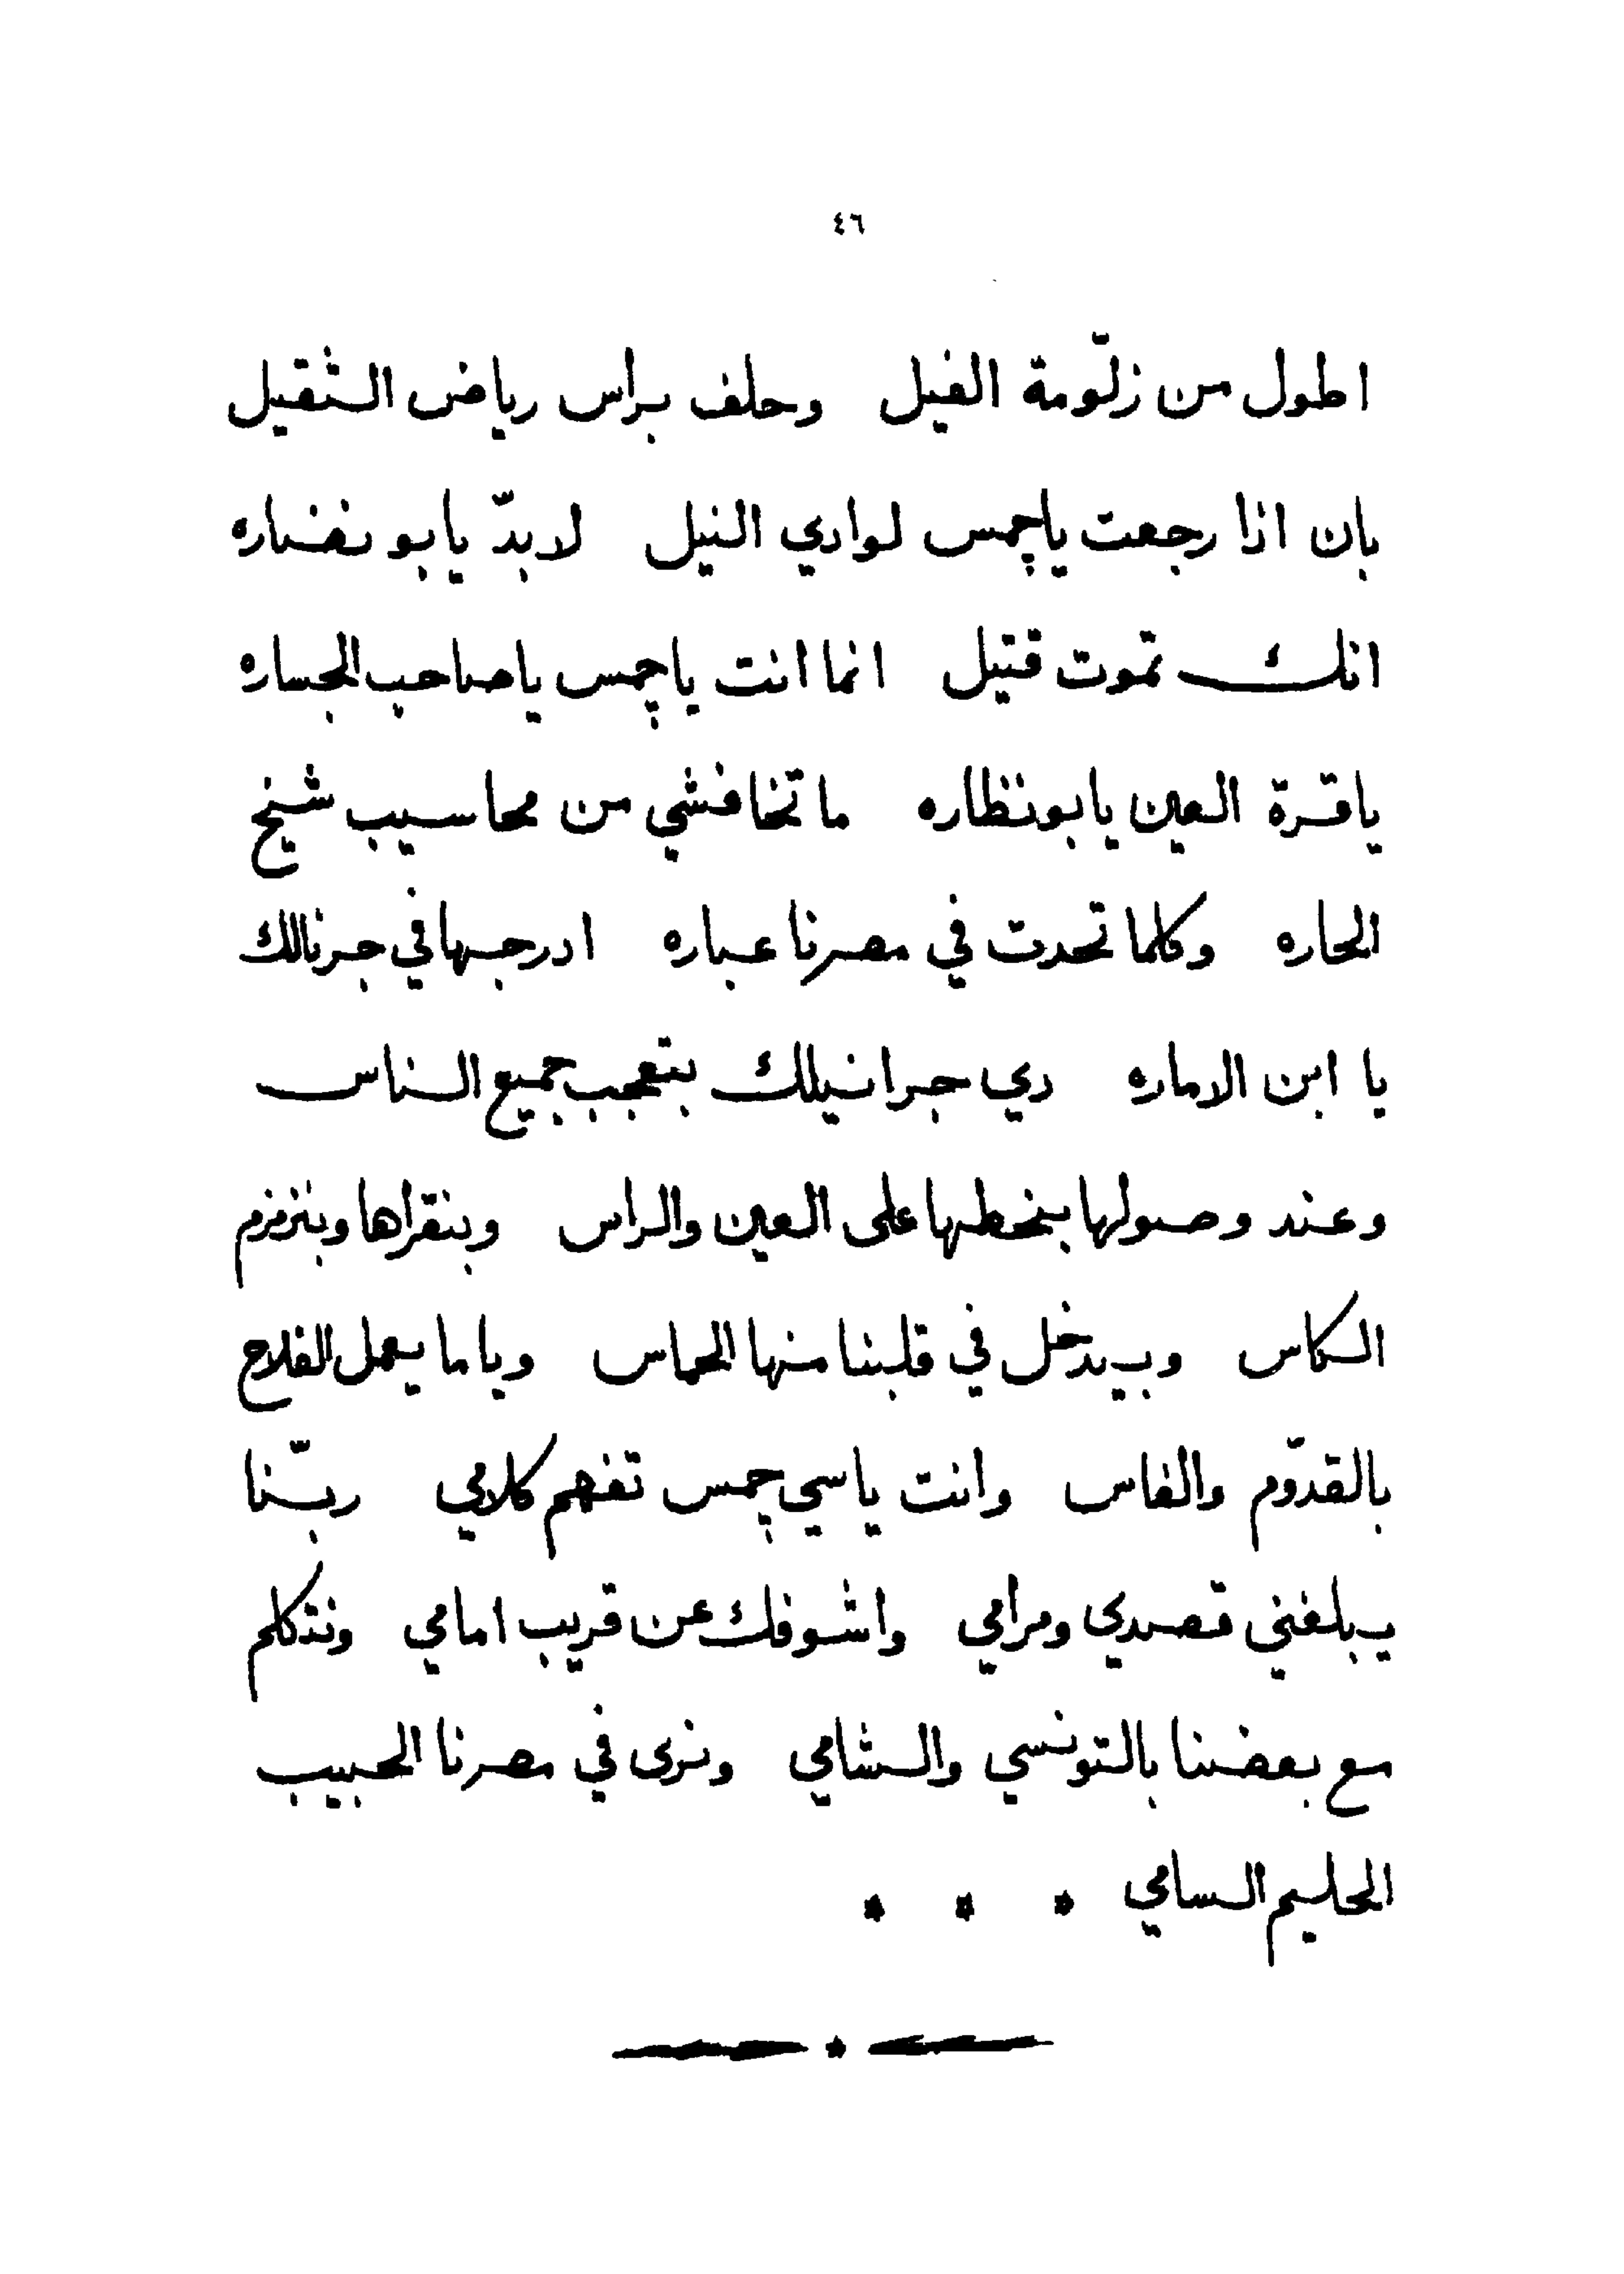 ٤٦
اطول من زلّومة الفيل وحلف براس رياض الثقيل
بان اذا رجعت ياچمس لوادي النيل لابدّ يابو نضاره
انك تموت قتيل انما انت ياچمس ياصاحب الجساره
ياقرة العين يابونظاره ماتخافشي من محاسيب شيخ
الحاره وكلما تحدت في مصرنا عباره ادرجها في جرنالك
يا ابن الاماره دي جرانيلك بتعجب جميع الناس
وعند وصولها بنحطها على العين والراس وبنقراها وبنزمزم
الكاس وبيدخل في قلبنا منها الحماس وياما يعمل الفلاح
بالقدّوم والفاس وانت ياسي چمس تفهم كلامي ربّنا
يبلغني قصدي ومرامي واشوفك عن قريب امامي ونتكلم
مع بعضنا بالتونسي والشامي ونرى في مصرنا الحبيب
الحليم السامي * * *